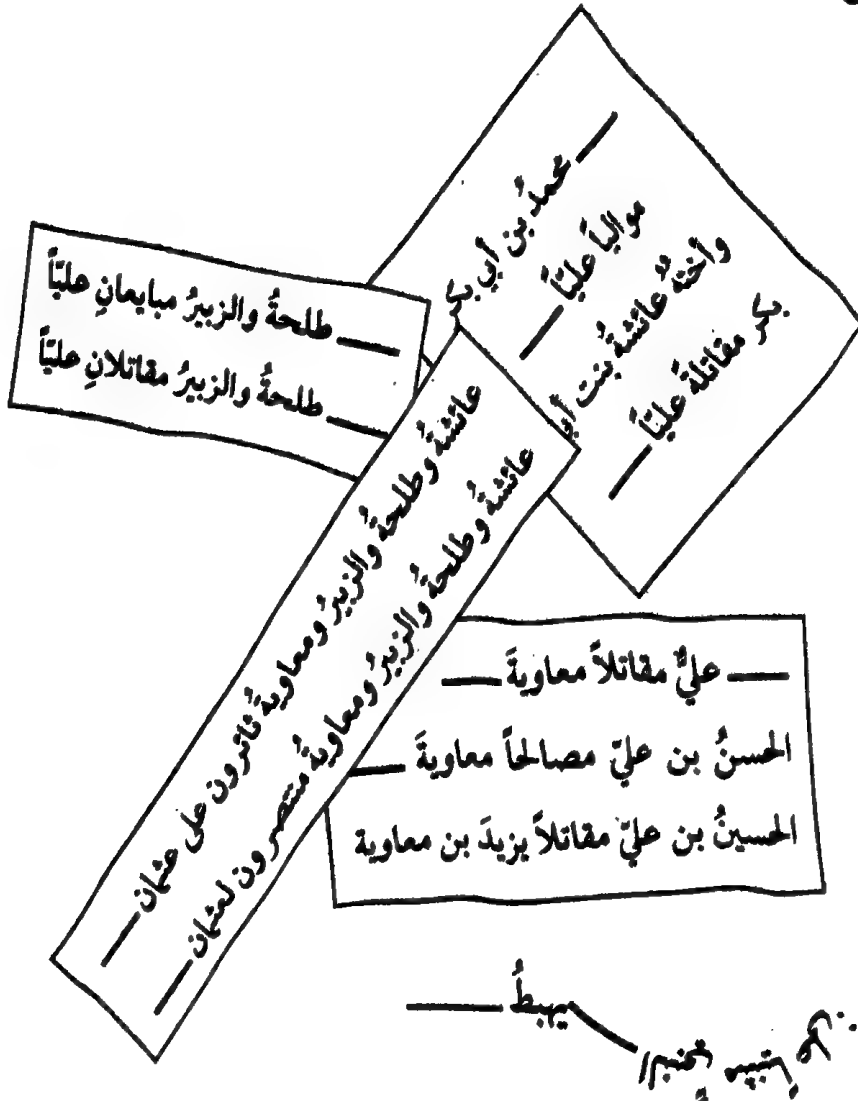 محمدُ بن أبي بكر
موالياً عليّاً
وأختهُ عائشةُ بنت أبي
بكر مقاتلةً عليّاً
طلحةُ والزبيرُ مبايعانِ عليّاً
طلحةُ والزبيرُ مقاتلانِ عليّاً
عائشةُ وطلحةُ والزبيرُ ومعاويةُ ثائرون على عثمان
عائشةُ وطلحةُ والزبيرُ ومعاويةُ منتصرون لعثمان
عليٌّ مقاتلاً معاويةَ
الحسنُ بن عليّ مصالحاً معاويةَ
الحسينُ بن عليّ مقاتلاً يزيدَ بن معاوية
يهبطُ